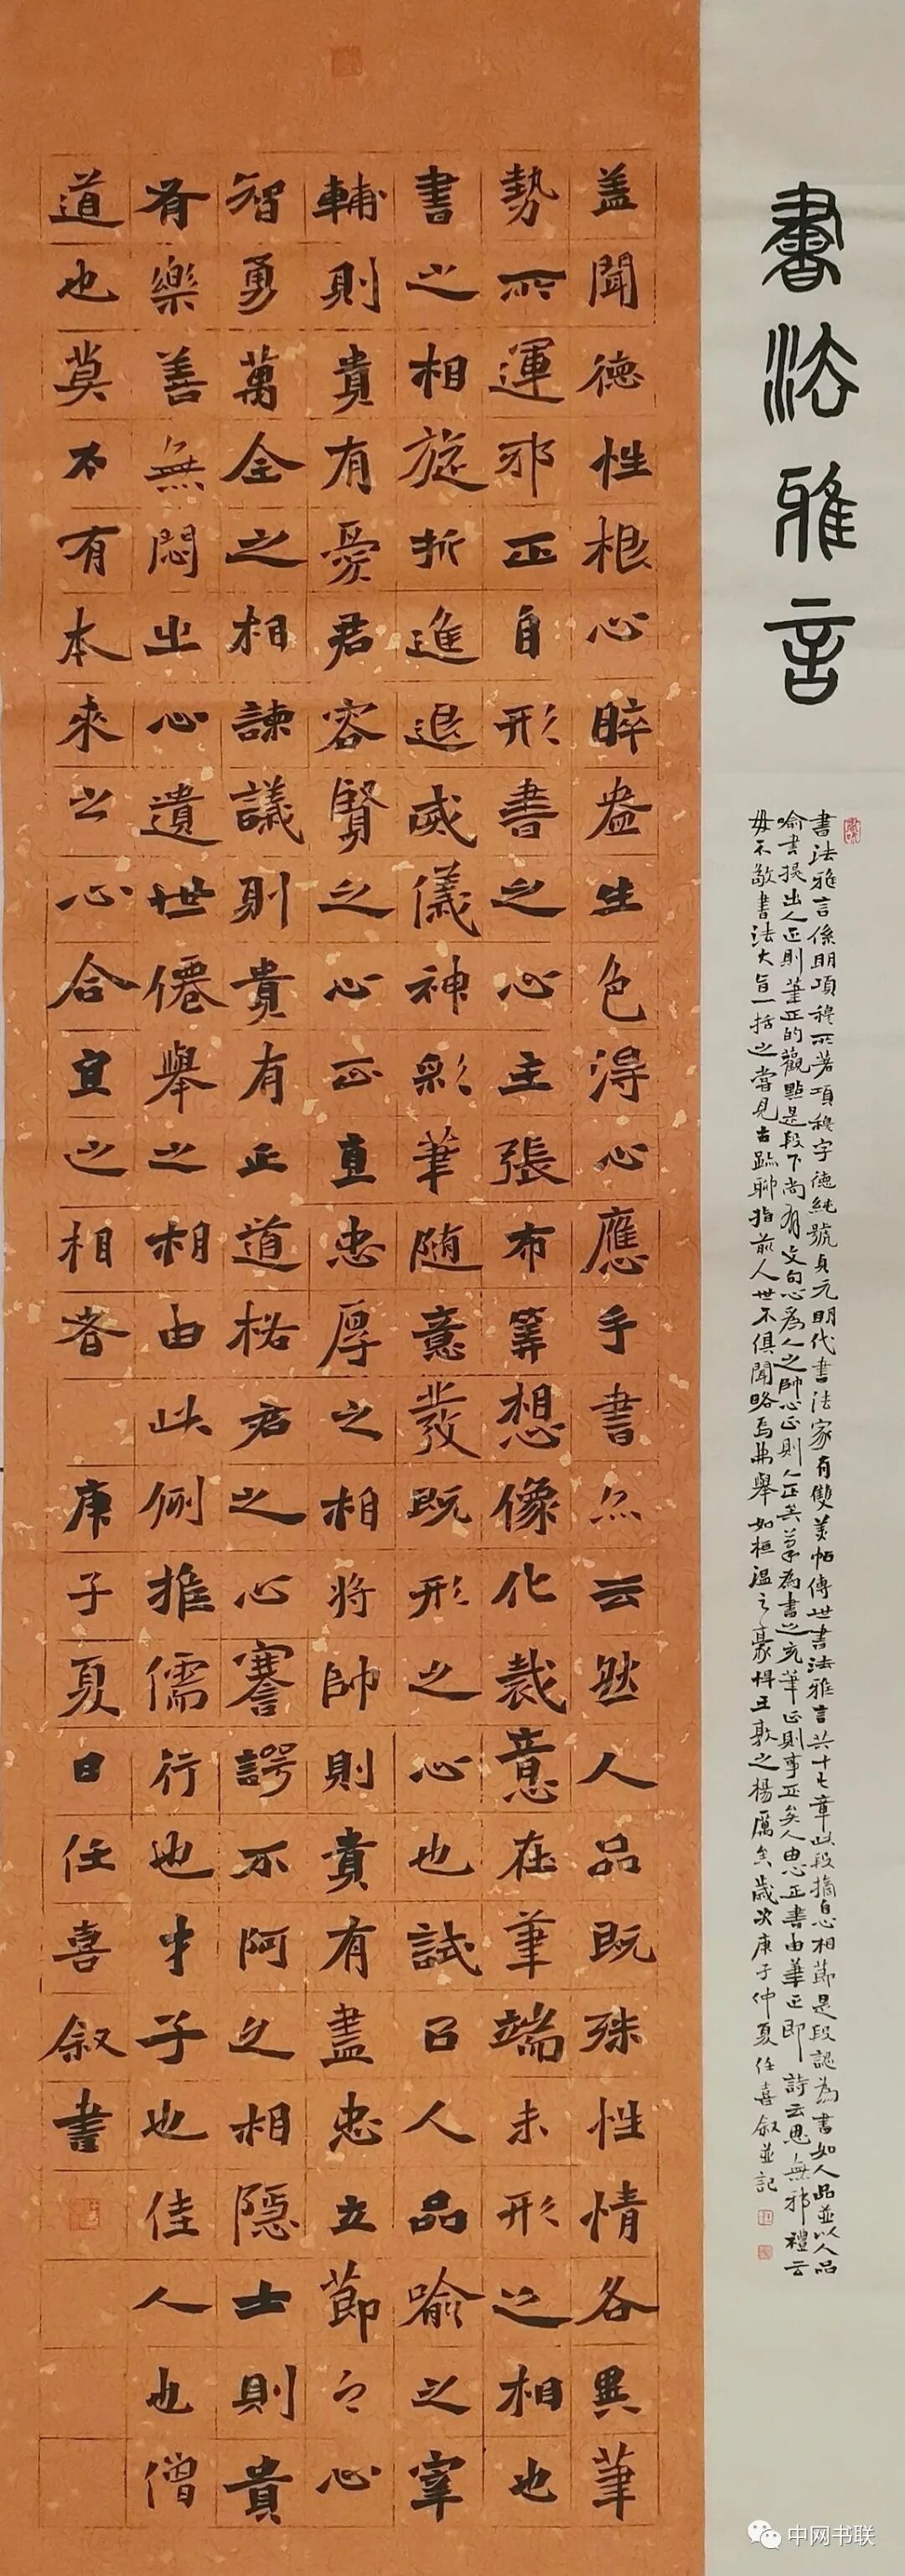 書法雅言
書法雅言係明項穆所著項穆字德純號貞元明代書法家有雙美帖傳世書法雅言共十七章此段摘自心相節是段認為書如人品並以人品
喻書提出人正則筆正的觀點是段下尚有文句心為人之帥心正則人正矣筆為書之充筆正則事正矣人由心正書由筆正即詩云思無邪禮云
毋不敬書法大旨一括之當見古跡聊指前人世不俱聞略焉弗舉如桓温之豪悍王敦之揚厲矣歲次庚子仲夏任喜叙並記
盖聞德性根心睟盎生色得心應手書亦云然人品既殊性情各異筆
勢所運邪正自形書之心主張布筭想像化裁意在筆端未形之相也
書之相旋折進退威儀神彩筆随意發既形之心也試以人品喻之宰
輔則貴有愛君容賢之心正直忠厚之相將帥則貴有盡忠立節之心
智勇萬全之相諫議則貴有正道格君之心謇諤不阿之相隱士則貴
有樂善無悶之心遺世僊舉之相由此例推儒行也才子也佳人也僧
道也莫不有本來之心合宜之相者 庚子夏日任喜叙書
中网书联